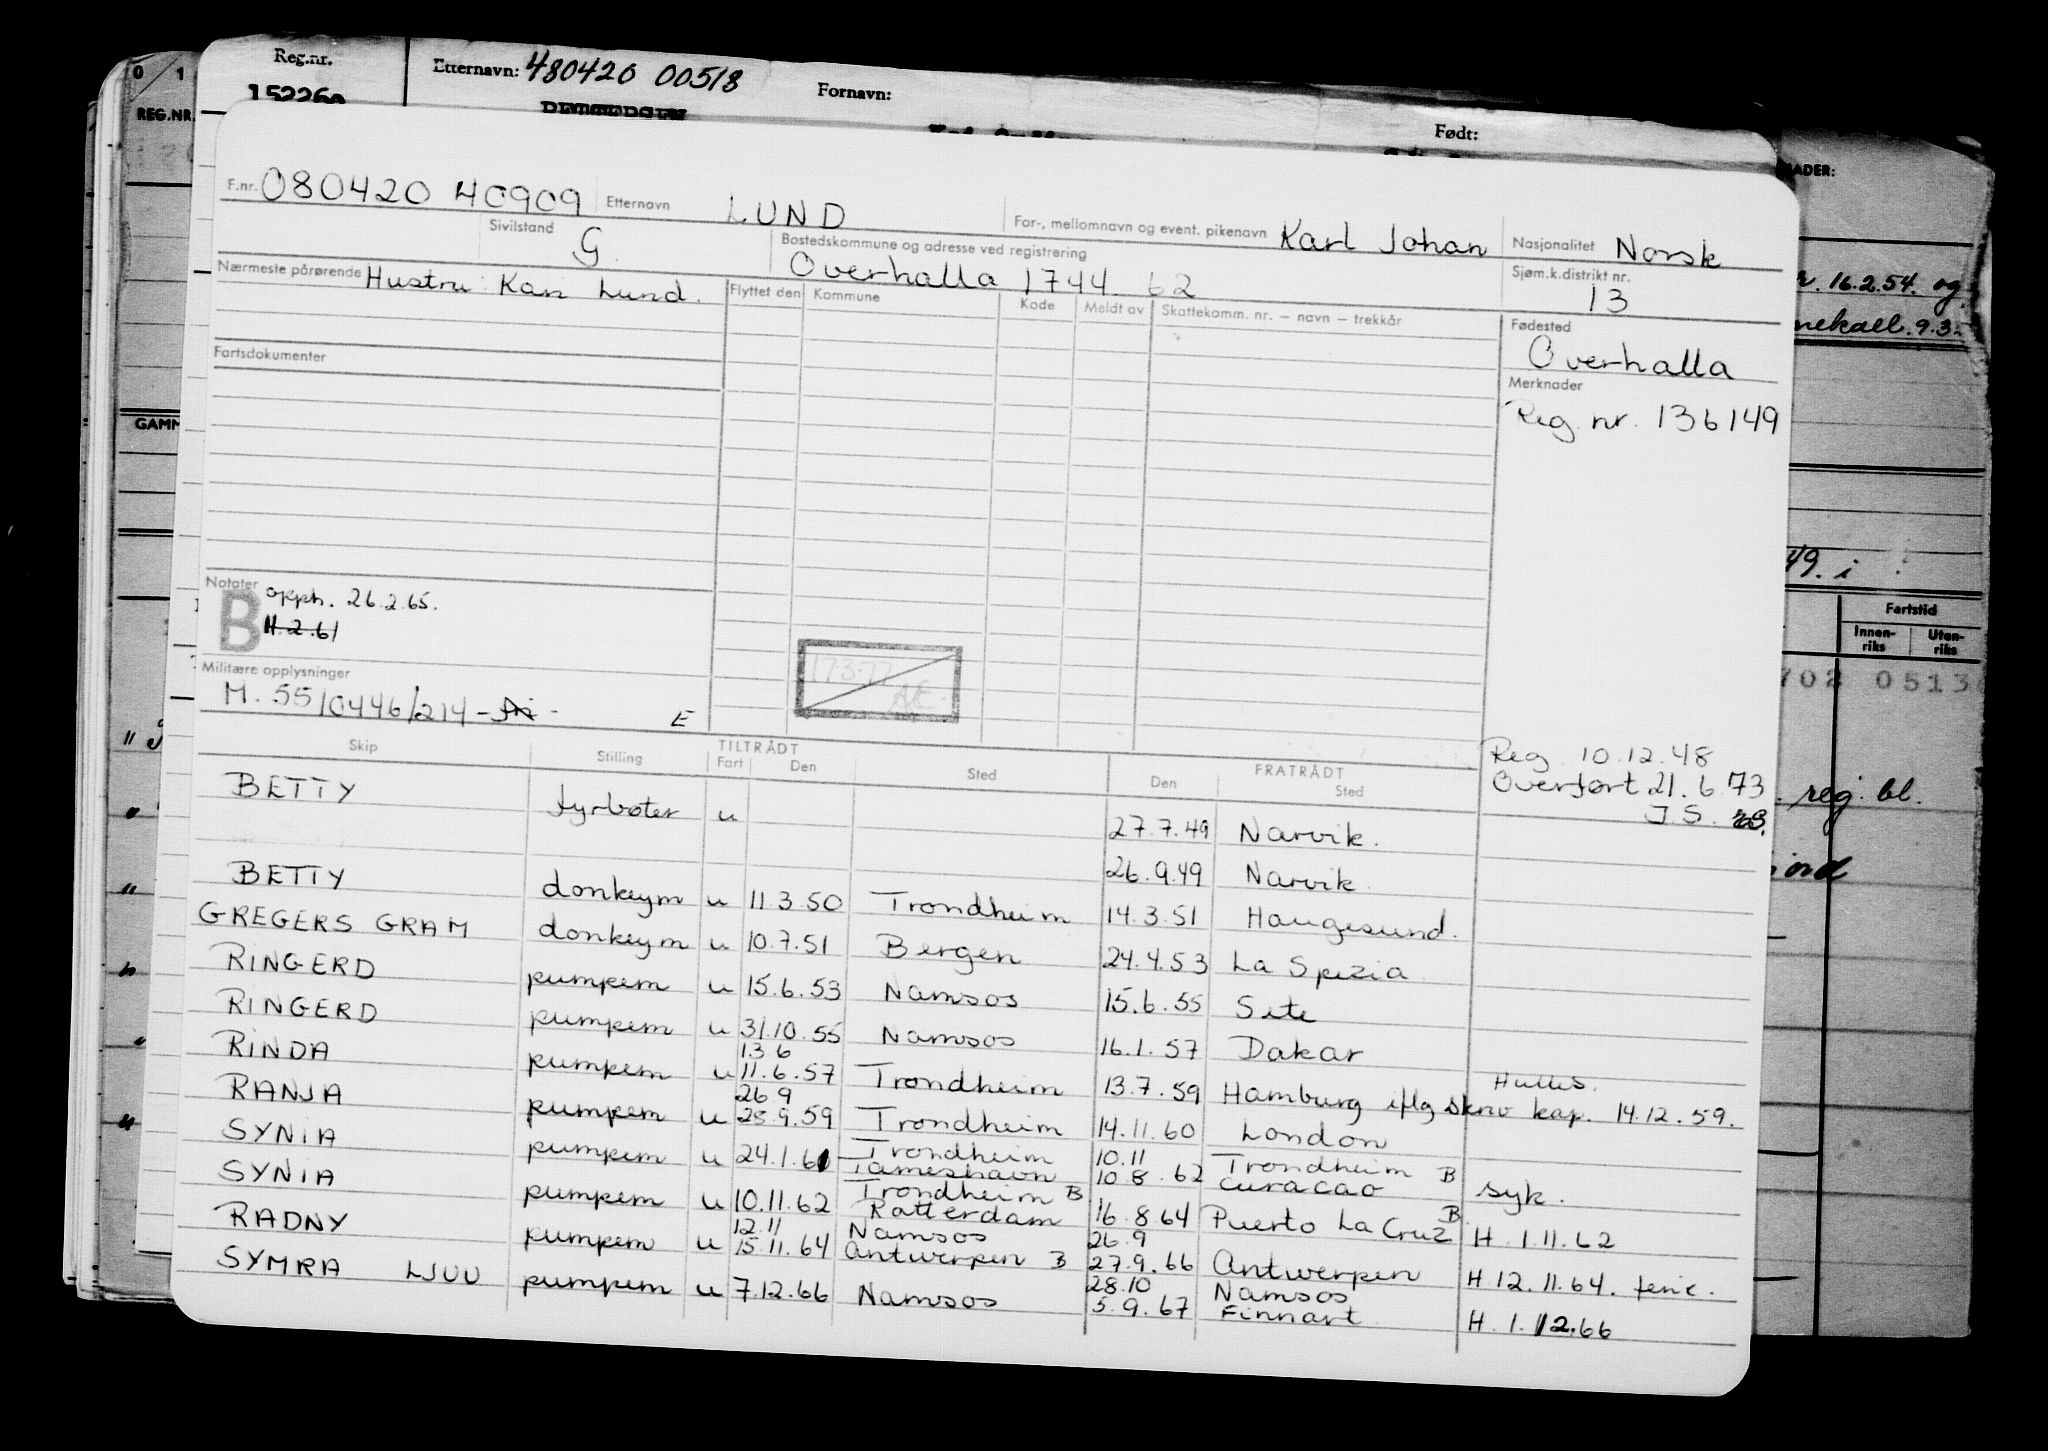 Reg.nr. Etternavn: 480420 00518 Fornavn: Født:
152260
0 1
REG.NR.
F.nr. 080420 40909 Etternavn LUND For-, mellomnavn og event. pikenavn Karl Johan Nasjonalitet Norsk
Sivilstand G. Bostedskommune og adresse ved registrering Overhalla 1744 62 Sjøm.k.distrikt nr. 13
Nærmeste pårørende Hustru Kari Lund. Flyttet den Kommune Kode Meldt av Skattekomm. nr. – navn – trekkår
Fødested
Overhalla
Fartsdokumenter
Merknader
Reg. nr. 136149
Notater
B opph. 26.2.65.
H.2.61
Militære opplysninger
M. 55/0446/214 - E
173.77 AE.
Reg. 10.12.48
Overført 21.6.73
J.S.
Skip Stilling TILTRÅDT FRATRÅDT
Fart Den Sted Den Sted
BETTY fyrbøter u 27.7.49 Narvik.
26.9.49 Narvik
BETTY donkeym u 11.3.50 Trondheim 14.3.51 Haugesund.
GREGERS GRAM donkeym u 10.7.51 Bergen 24.4.53 La Spezia
RINGERD pumpem u 15.6.53 Namsos 15.6.55 Sete
RINGERD pumpem u 31.10.55 Namsos 16.1.57 Dakar
RINDA pumpem u 13 6 11.6.57 Trondheim 13.7.59 Hamburg iflg skriv kap. 14.12.59.
RANJA pumpem u 26.9 25.9.59 Trondheim 14.11.60 London
SYNIA pumpem u 24.1.61 Trondheim Jameshavn 10.11 10 8.62 Trondheim B Curacao syk.
SYNIA pumpem u 10.11.62 Trondheim B Rotterdam 16.8.64 Puerto La Cruz B H. 1.11.62
RADNY pumpem u 12.11 15.11.64 Namsos Antwerpen B 26.9 27.9.66 Antwerpen H 12.11.64. ferie.
SYMRA LJUU pumpem u 7.12.66 Namsos 28.10 5.9.67 Namsos Finnart H. 1.12.66
16.2.54. og
9.3.
49. i
Fartstid
Innen-riks Uten-riks
702 0513
reg. bl.